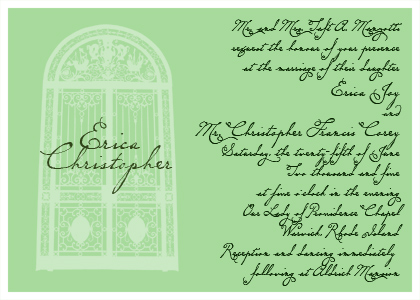 Erica
Christopher
Mr. and Mrs. Taft A. Manzotti
request the honour of your presence
at the marriage of their daughter
Erica Joy
and
Mr. Christopher Francis Corey
Saturday, the twenty-fifth of June
Two thousand and five
at five o'clock in the evening
Our Lady of Providence Chapel
Warwick, Rhode Island
Reception and dancing immediately
following at Aldrich Mansion